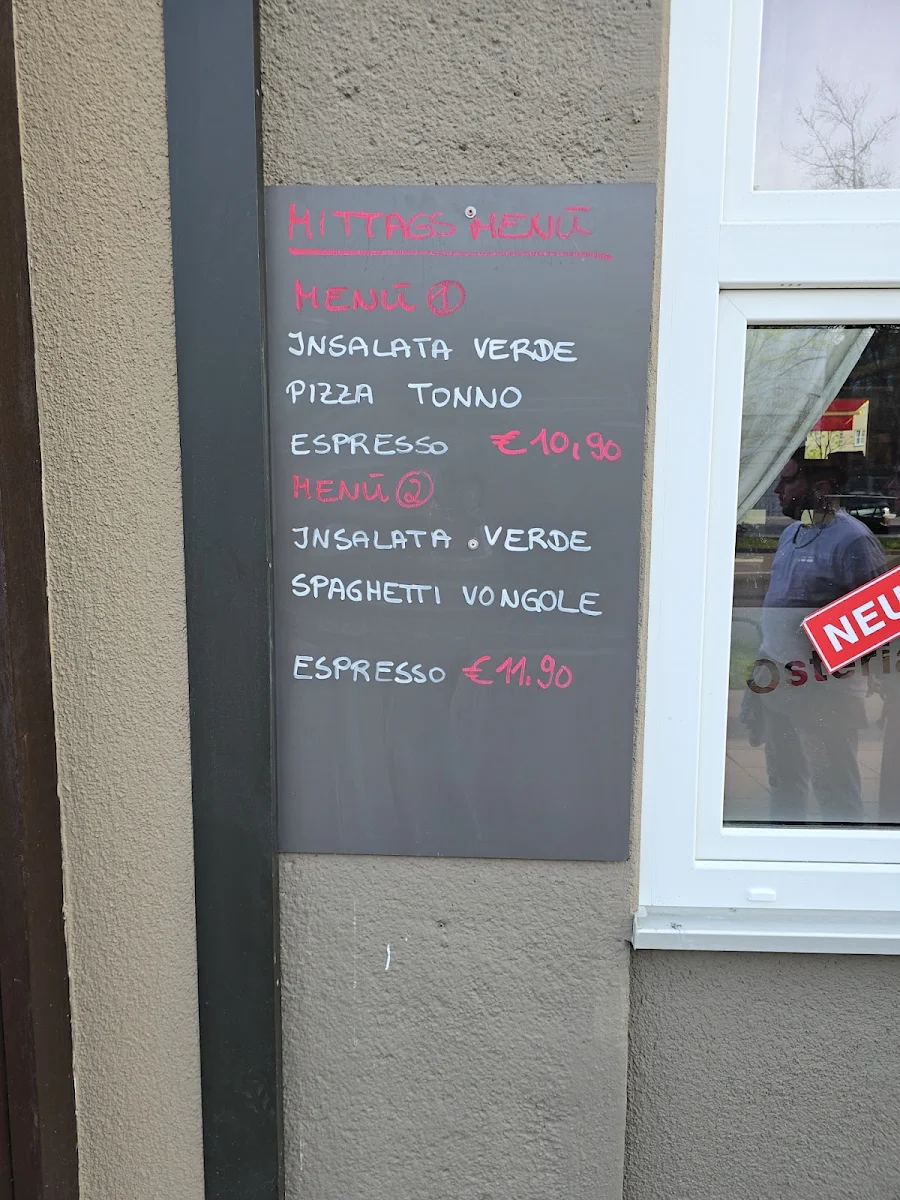 MITTAGS MENÜ
MENÜ ①
INSALATA VERDE
PIZZA TONNO
ESPRESSO €10,90
MENÜ ②
INSALATA VERDE
SPAGHETTI VONGOLE
ESPRESSO €11.90
NEU
Osteria